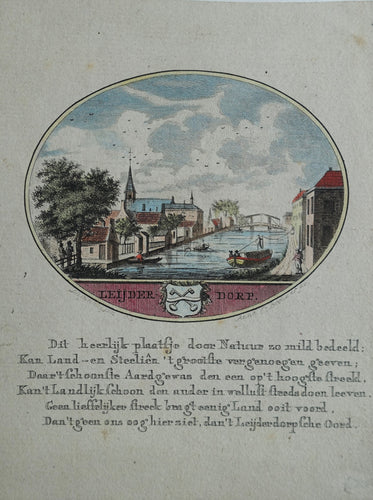 LEIJDER-DORP.
Dit heerlijk plaatsje door Natuur zo mild bedeeld;
Kan Land-en Steeliên 't grootste vergenoegen geeven;
Daar 't schoonste Aardgewas den een op't hoogste streeld,
Kan't Landlijk schoon den ander in wellust steeds doen leeven.
Geen liefselijker streek bragt eenig Land ooit voord,
Dan 't geen ons oog hier ziet, dan 't Leijderdorpsche Oord.